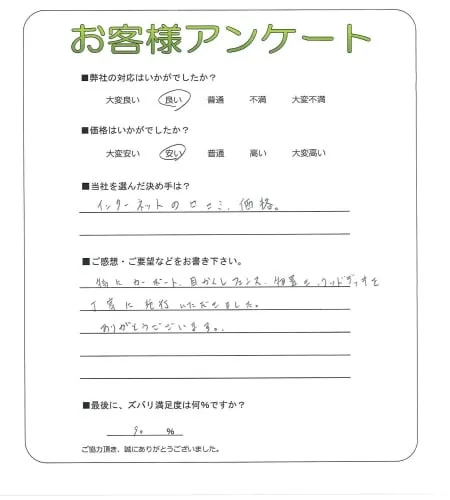 お客様アンケート
■弊社の対応はいかがでしたか?
大変良い 良い 普通 不満 大変不満
■価格はいかがでしたか?
大変安い 安い 普通 高い 大変高い
■当社を選んだ決め手は?
インターネットの口コミ、価格。
■ご感想・ご要望などをお書き下さい。
特にカーポート、目かくしフェンス、物置き、ウッドデッキを
丁寧に施行いただきました。
ありがとうございます。
■最後に、ズバリ満足度は何%ですか?
90 %
ご協力頂き、誠にありがとうございました。